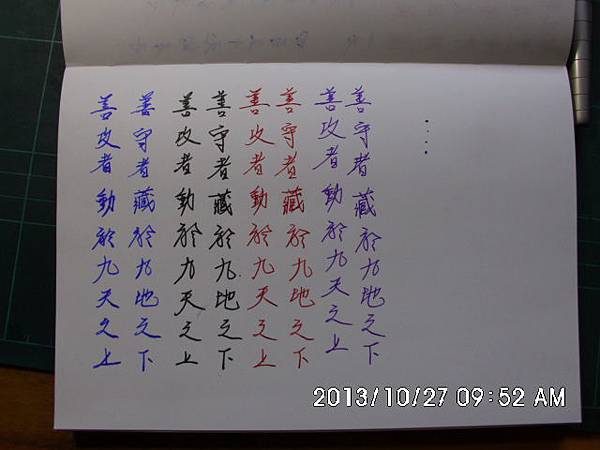 善守者藏於九地之下
善攻者動於九天之上
善守者藏於九地之下
善攻者動於九天之上
善守者藏於九地之下
善攻者動於九天之上
善守者藏於九地之下
善攻者動於九天之上
2013/10/27 09:52 AM